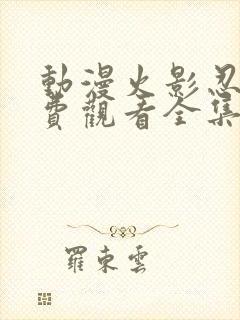 動漫火影忍
費觀看全集
羅東雲